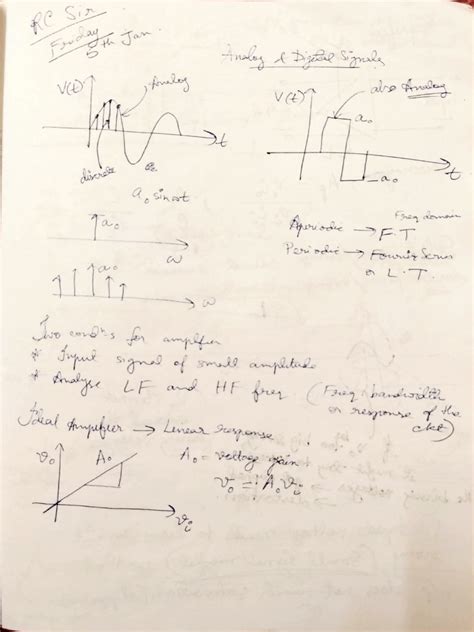 RC Sir
Friday
5th Jan
Analog & Digital Signals
V(t)
Analog
t
discrete
a₀ sin ωt
V(t)
also Analog
a₀
-a₀
t
a₀
ω
a₀
ω
Freq domain
Aperiodic → F.T
Periodic → Fourier Series
or L.T.
Two condⁿs for amplifier
* Input signal of small amplitude
* Analyse LF and HF freq (Freq bandwidth
or response of the
ckt)
Ideal Amplifier → Linear response
v₀
A₀
A₀ = voltage gain
v₀ = A₀vᵢ
vᵢ